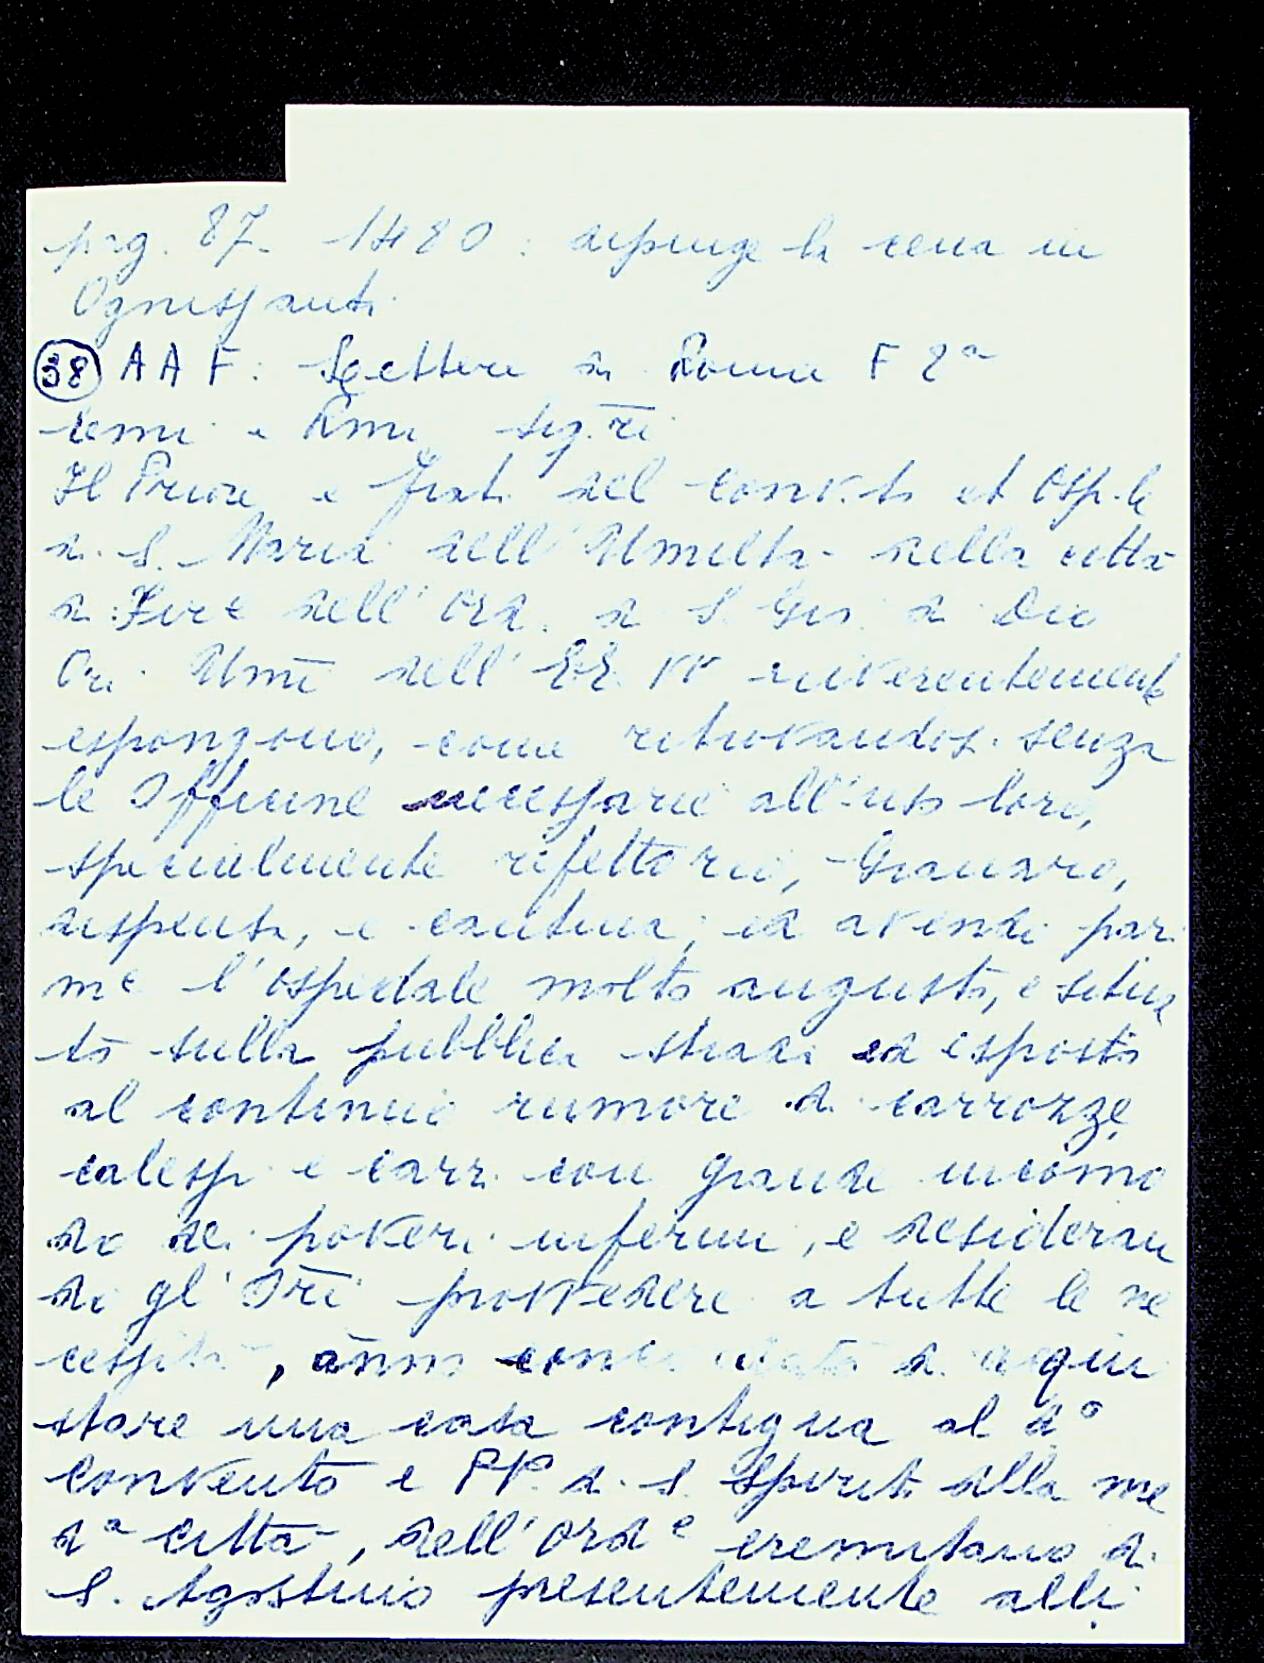 pag. 87. 1480: dipinge la cena in
Ognissanti.
(38) A A F: Lettere di Roma F 2ª
Emi e Rmi sig.ri
Il Priore e frati del Conv.to et Osp.le
di S. Maria dell'Umiltà della città
di Fire dell'Ord. di S. Gio. di Dio
Ori Umi dell'EE. VV riverentemente
espongono, come ritrovandosi senza
le Officine necessarie all'uso loro,
specialmente rifettorio, Granaro,
dispensa, e cantina; ed avendo pari
me l'ospedale molto angusto, e situa
to sulla pubblica strada ed esposto
al continuo rumore di carrozze,
calessi e carri con grande incomo
do dei poveri infermi, e desideran
do gl'Ori provvedere a tutte le ne
cessità, anno di acqui
stare una casa contigua al dº
Convento e PP. di S. Spirito della me
dª città, dell'Ordᵉ eremitano di
S. Agostino presentemente alli